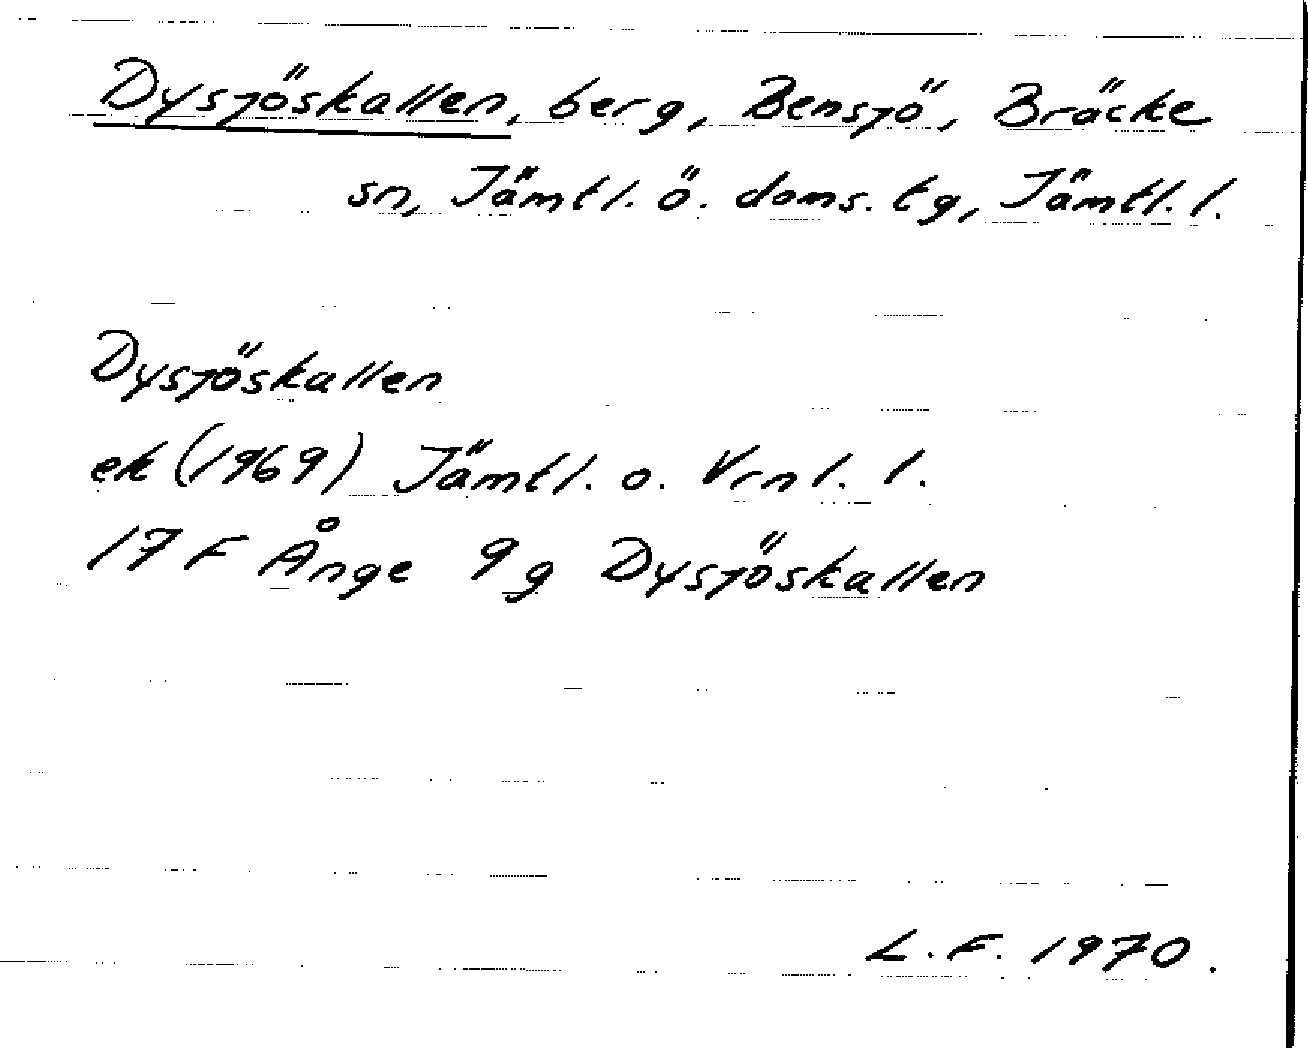 Dysjöskallen, berg, Bensjö, Bräcke
sn, Jämtl. ö. doms. tg, Jämtl. l.
Dysjöskallen
ek (1969) Jämtl. o. Vrnl. l.
17 F Ånge 9g Dysjöskallen
L.F. 1970.